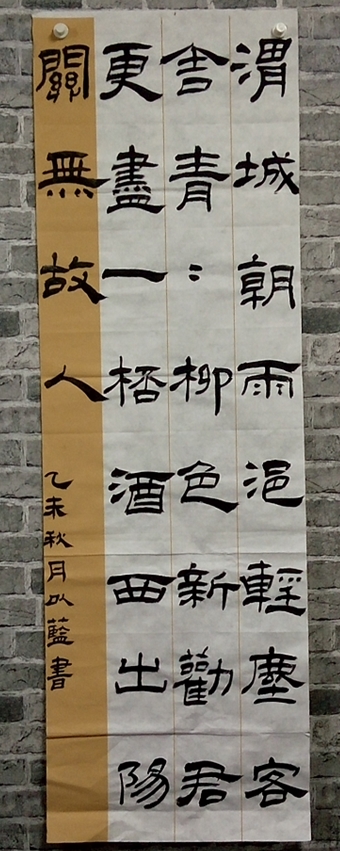 渭城朝雨浥輕塵客
舍青：柳色新勸君
更盡一桮酒西出陽
關無故人
乙未秋月以藍書